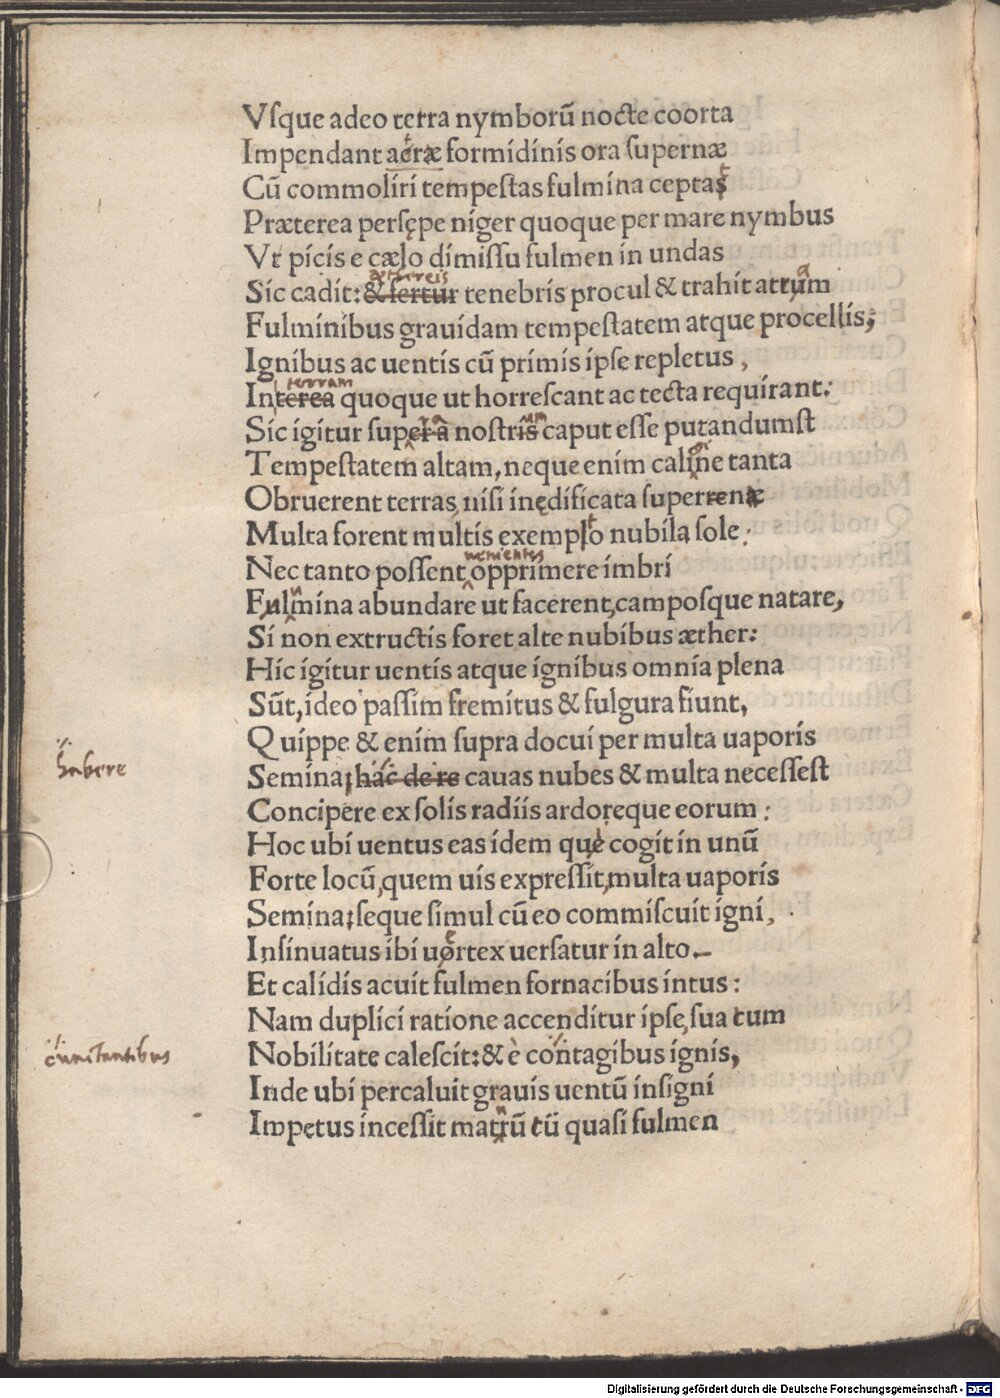 Vſque adeo tetra nymborũ nocte coorta
Impendant aeræ formidinis ora ſupernæ
Cũ commoliri tempeſtas fulmina ceptas
Præterea perſępe niger quoque per mare nymbus
Vt picis e cælo dimiſſu fulmen in undas
æthereis
Sic cadit: & fertur tenebris procul & trahit atrum
Fulminibus grauidam tempeſtatem atque procellis;
Ignibus ac uentis cũ primis ipſe repletus,
terram
Interea quoque ut horreſcant ac tecta requirant:
Sic igitur ſupera noſtris caput eſſe putandumſt
Tempeſtatem altam, neque enim caline tanta
Obruerent terras, niſi inędificata ſuperrenæ
Multa forent multis exemplo nubila ſole:
uenientes
Nec tanto poſſent opprimere imbri
Fulmina abundare ut facerent, campoſque natare,
Si non extructis foret alte nubibus æther:
Hic igitur uentis atque ignibus omnia plena
Sũt, ideo paſſim fremitus & fulgura fiunt,
Quippe & enim ſupra docui per multa uaporis
habere
Semina; hac de re cauas nubes & multa neceſſeſt
Concipere ex ſolis radiis ardoreque eorum:
Hoc ubi uentus eas idem què cogit in unũ
Forte locũ, quem uis expreſſit, multa uaporis
Semina; ſeque ſimul cũ eo commiſcuit igni,
Inſinuatus ibi uortex uerſatur in alto
Et calidis acuit fulmen fornacibus intus:
Nam duplici ratione accenditur ipſe, ſua cum
cunctantibus
Nobilitate caleſcit: & è contagibus ignis,
Inde ubi percaluit grauis uentũ inſigni
Impetus inceſſit matrũ tũ quaſi fulmen
Digitalisierung gefördert durch die Deutsche Forschungsgemeinschaft - DFG